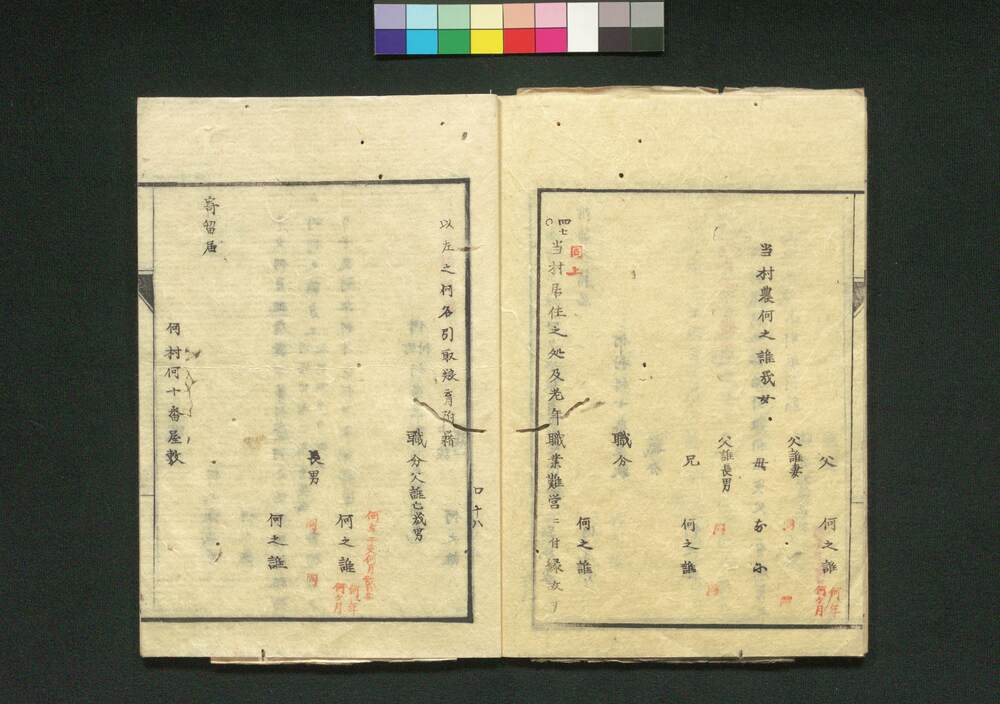 父
何之誰
何年
何ヶ月
父誰妻
同
当村農何之誰
母
父誰長男
同
兄
何之誰
同
職分
何之誰
四七
同上
当村居住之処及老年職業難営ニ付縁女
口十八
以左之何各引取
附籍
職分父誰亡
男
何之誰
何年
何ヶ月
長男
同
同
何之誰
寄留届
何村何十番屋敷